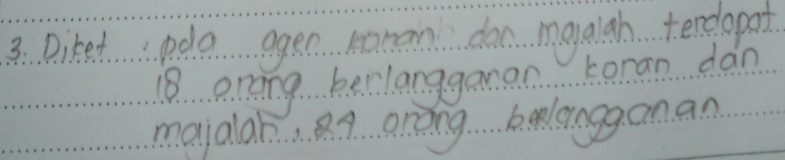 3. Diket : pda agen koran dan majalah terdapat
18 orang berlangganan koran dan
majalah, 24 orang berlangganan